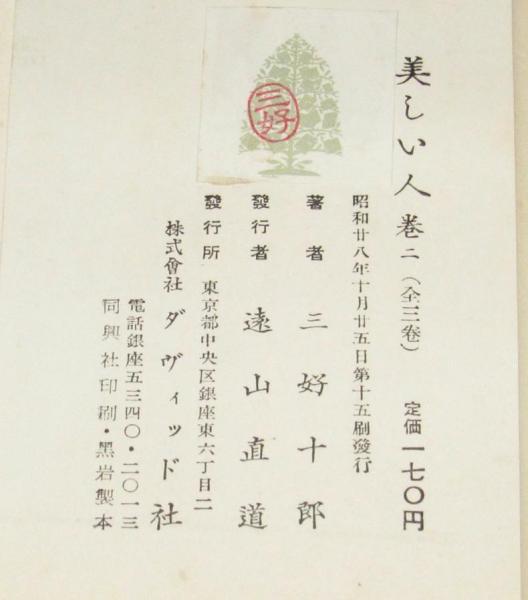 美しい人 巻二（全三巻） 定価一七〇円
昭和廿八年十月廿五日第十五刷發行
著者 三好十郎
發行者 遠山直道
發行所 東京都中央区銀座東六丁目二
株式會社 ダヴィッド社
電話銀座五三四〇・二〇一三
同興社印刷・黑岩製本
三好